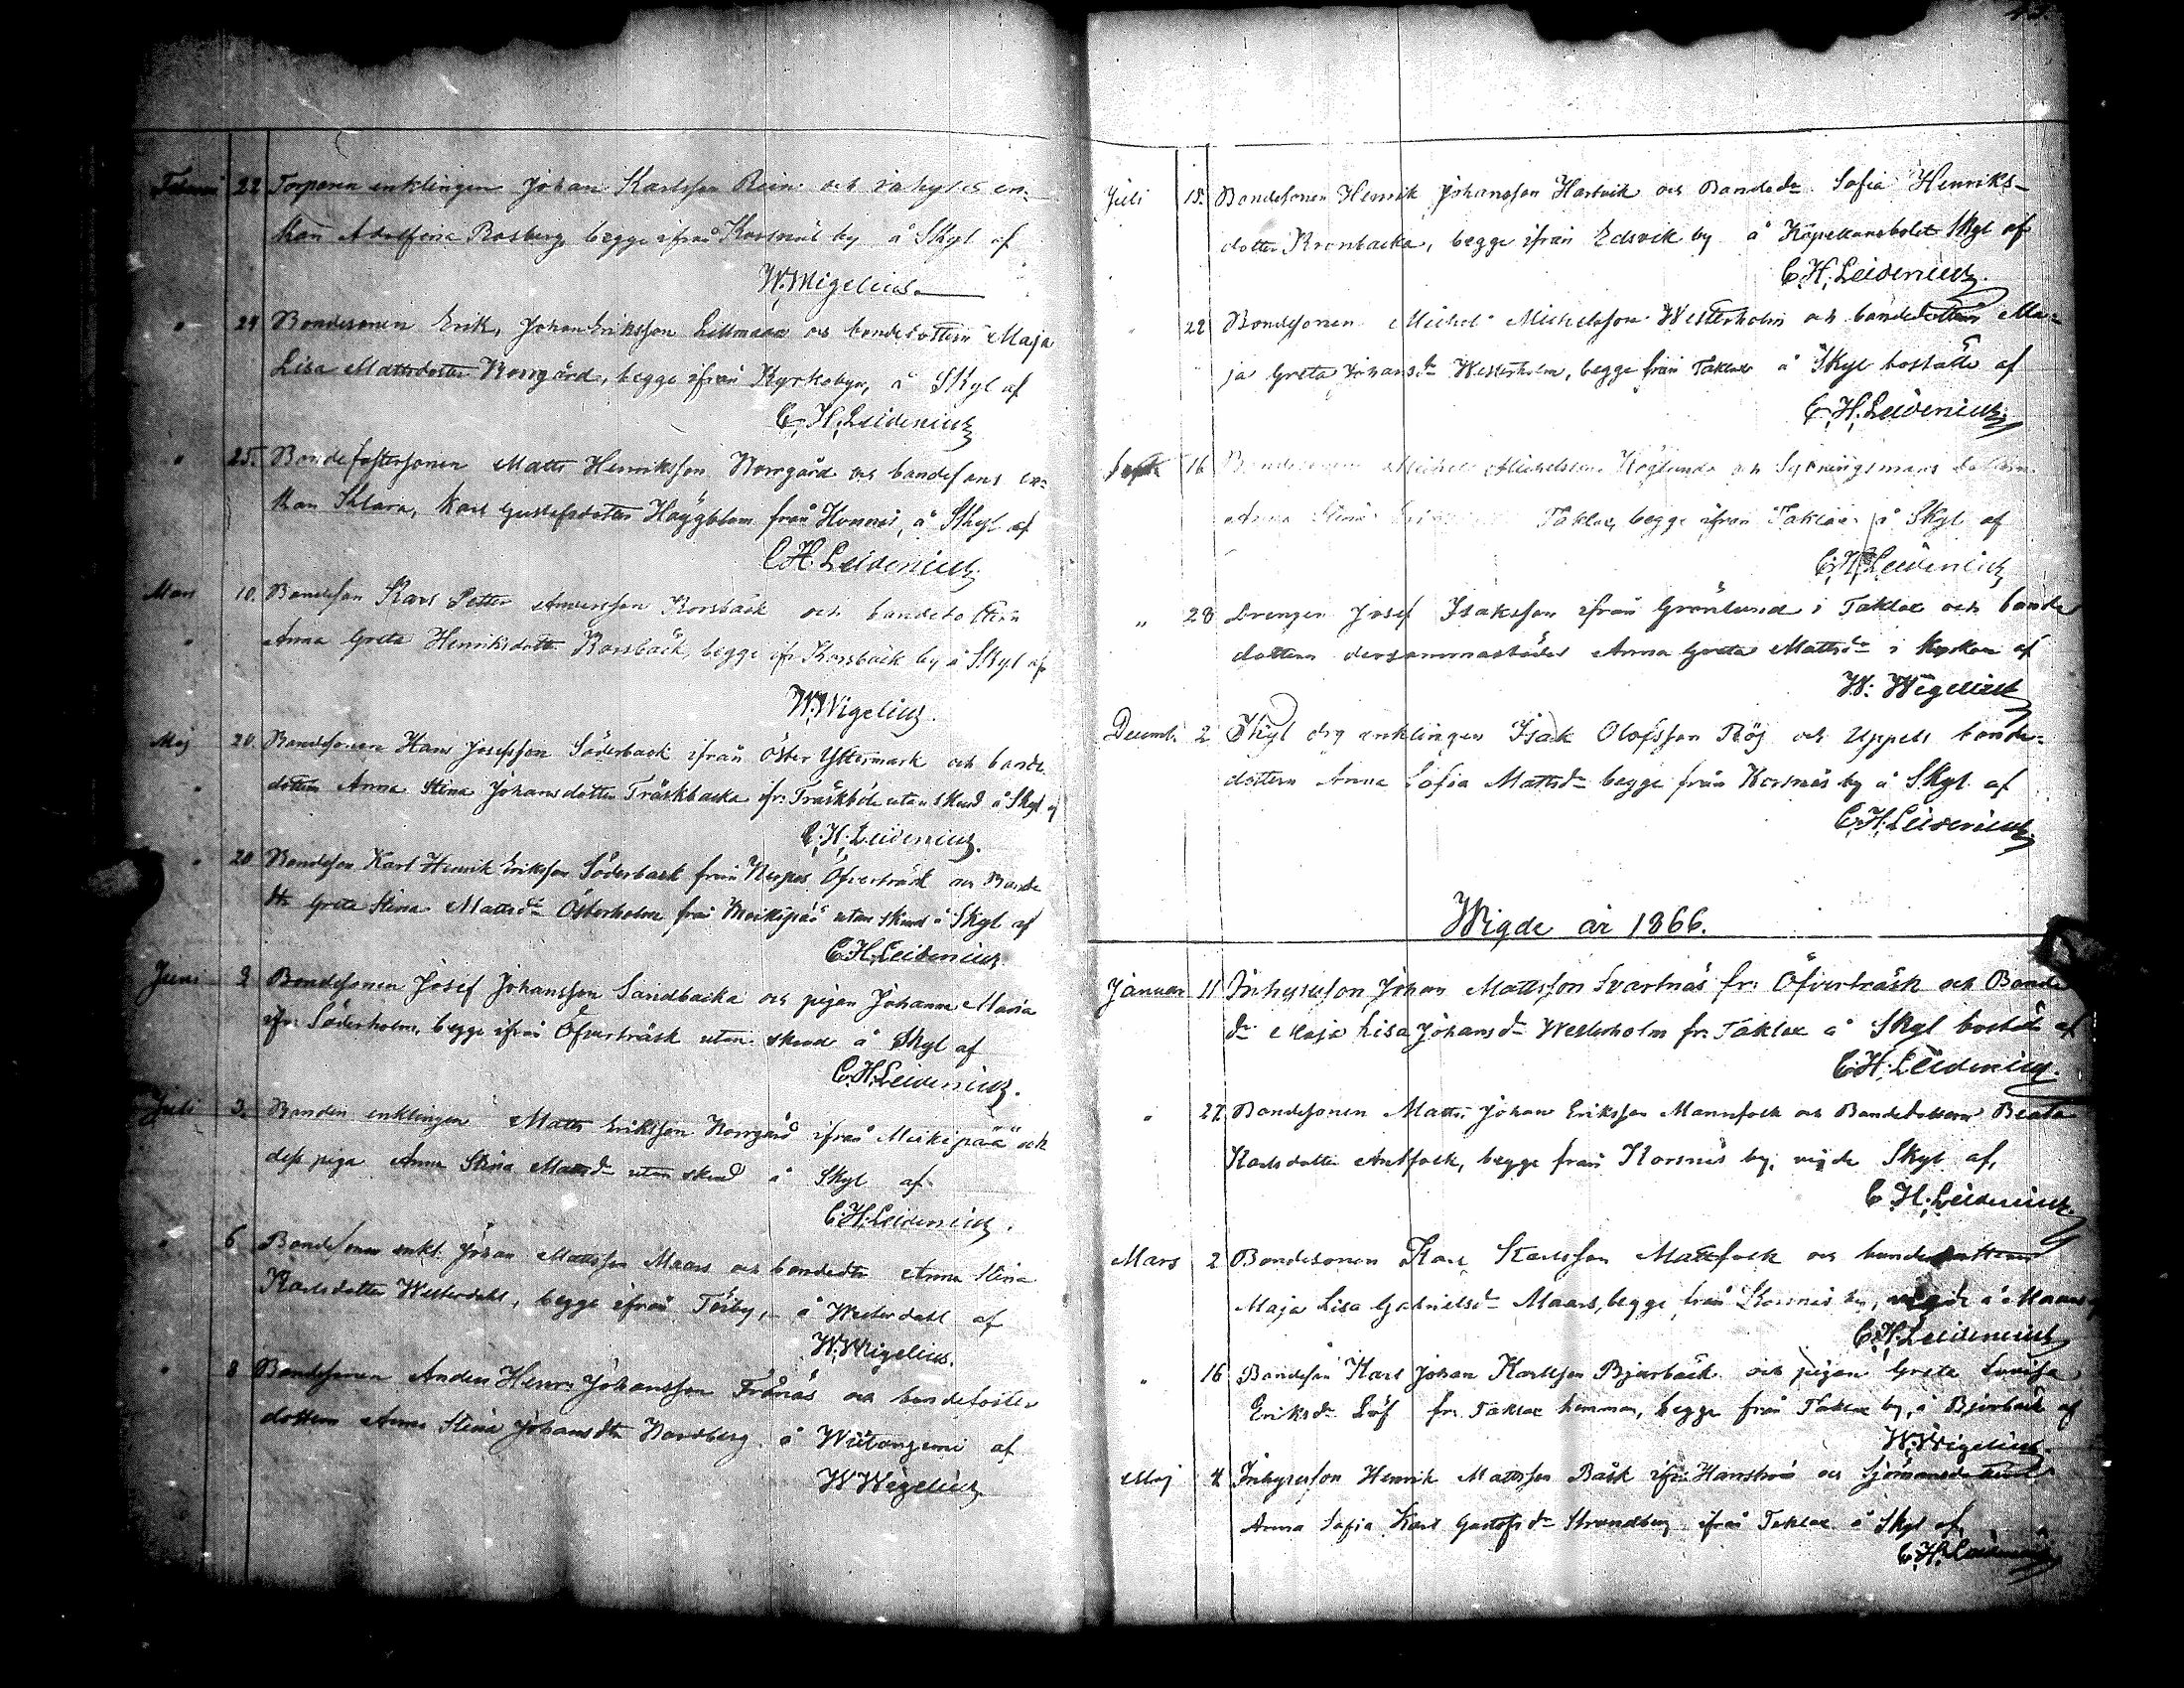 Februari 22 Torparen enklingen Johan Karlsson Rein och inhyses en-
kan Adolfina Rosberg begge ifrån Korsnäs by å Skyl af
W. Wigelius.
" 24 Bondesonen Erik, Johan Eriksson Lillmåns och bondedottern Maja
Lisa Mattsdotter Norrgård, begge ifrån Kyrkobyn, å Skyl af
C. H. Leidenius
" 25. Bondefostersonen Matts Henriksson Norrgård och bondesons en-
kan Klara, Karl Gustafsdotter Häggblom från Korsnäs, å Skyl af
C. H. Leidenius.
Mars 10. Bondeson Karl Petter Andersson Korsbäck och bondedottern
" Anna Greta Henriksdottr Korsbäck, begge ifr. Korsbäck by å Skyl af
W. Wigelius.
Maj 20. Bondesonen Hans Josefsson Söderback ifrån Öster Yttermark och bonde
" dottern Anna Stina Johansdotter Träskbacka ifr. Träskböle utan skud å Skyl af
C. H. Leidenius.
" 20 Bondeson Karl Henrik Eriksson Söderback från Nerpes Öfverträsk och Bonde
dtr Greta Stina Mattsdr Österholm från Moikipää utan skud å Skyl af
C. H. Leidenius
Juni 9 Bondesonen Josef Johansson Sandbacka och pigan Johanna Maria
ifr. Söderholm, begge ifrån Öfverträsk utan skud å Skyl af
C. H. Leidenius.
Juli 3. Bonden enklingen Matts Eriksson Norrgård ifrån Moikipää och
dess piga Anna Stina Mattsdr utan skud å Skyl af
C. H. Leidenius.
" 6 Bondesonen enkl. Johan Mattsson Maars och bondedtr Anna Stina
Karlsdotter Westerdahl, begge ifrån Töjby, å Westerdahl af
W. Wigelius.
" 8 Bondesonen Anders Henr. Johansson Frånäs och bondefoster
dottern Anna Stina Johansdtr Nordberg å Witongerni af
W Wigelius
Juli 15. Bondesonen Henrik Johansson Hartvik och Bondedr Sofia Henriks-
dotter Kronbacka, begge ifrån Edsvik by å Kapellansbolet Skyl af
C. H. Leidenius.
" 22 Bondesonen Michel Michelsson Westerholm och bondedottern Ma-
ja Greta Johansdr Westerholm, begge från Taklax å Skyl boställe af
C. H. Leidenius.
Septe 16 Bondesonen Michel Michelsson Höglund och Sytningsmans dottern
Anna Stina Taklax, begge ifrån Taklax å Skyl af
C. H. Leidenius
" 28 Drengen Josef Isaksson ifrån Grönlund i Taklax och bonde
dottern dersammastädes Anna Greta Mattsdr i Kyrkan af
W. Wigelius
Decemb. 2 Skyl drg enklingen Isak Olofsson Röj och Uppels bonde-
dottern Anna Sofia Mattsdr begge från Korsnäs by å Skyl. af
C. H. Leidenius.
Wigde år 1866.
Januari 11 Inhysesson Johan Mattsson Svartnäs fr. Öfverträsk och Bonde
dr Maja Lisa Johansdr Westerholm fr. Taklax å Skyl boställe af
C. H. Leidenius.
" 27. Bondesonen Matts Johan Eriksson Mannfolk och Bondedottern Beata
Karlsdotter Antfolk, begge från Korsnäs by, vigde Skyl af,
C. H. Leidenius.
Mars 2 Bondesonen Karl Karlsson Mattfolk och bondedottern
Maja Lisa Gabrielsdr Maars, begge från Korsnäs by, vigde å Maars af
C. H. Leidenius
" 16 Bondeson Karl Johan Karlsson Bjurbäck och pigan Greta Lovisa
Eriksdr Löf fr. Taklax hemman, begge från Taklax by, å Bjurbäck af
W. Wigelius.
Maj 4 Inhysesson Henrik Mattsson Bäck ifr. Harrström och Sjömansdottern
Anna Sofia Karl Gustafsdr Strandberg ifrån Taklax å Skyl af
C. H. Leidenius